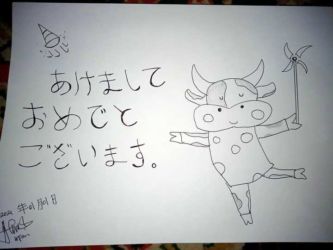 あけまして
おめでと
ございます。
年01月01日